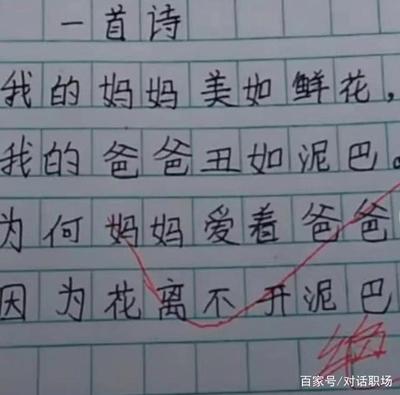 一首诗
我的妈妈美如鲜花，
我的爸爸丑如泥巴。
为何妈妈爱着爸爸
因为花离不开泥巴
百家号/对话职场